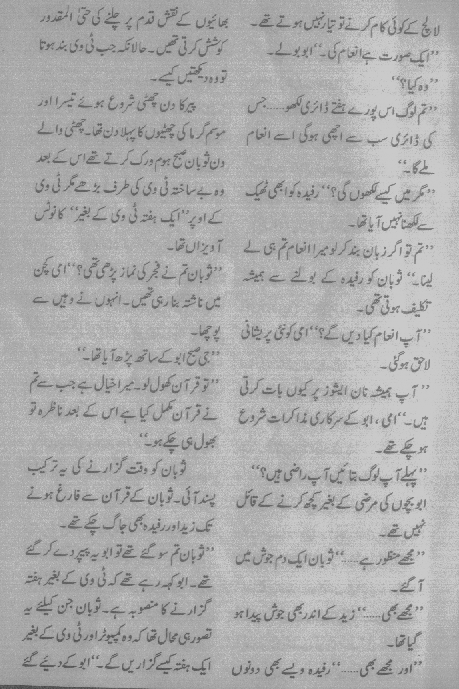 لالچ کے کوئی کام کرنے کو تیار نہیں ہوتے تھے۔
”ایک صورت ہے انعام کی۔“ ابو بولے۔
”وہ کیا؟“
”تم لوگ اس پورے ہفتے ڈائری لکھو...... جس
کی ڈائری سب سے اچھی ہوگی اسے انعام
ملے گا۔“
”مگر میں کیسے لکھوں گی؟“ رفیدہ کو ابھی ٹھیک
سے لکھنا نہیں آیا تھا۔
”تم تو اگر زبان بند کر لو میرا انعام تم ہی لے
لینا۔“ ثوبان کو رفیدہ کے بولنے سے ہمیشہ
تکلیف ہوتی تھی۔
”آپ انعام کیا دیں گے؟“ امی کو نئی پریشانی
لاحق ہوگئی۔
”آپ ہمیشہ نان ایشوز پر کیوں بات کرتی
ہیں۔“ امی، ابو کے سرکاری مذاکرات شروع
ہو چکے تھے۔
”پہلے آپ لوگ بتائیں آپ راضی ہیں؟“
ابو بچوں کی مرضی کے بغیر کچھ کرنے کے قائل
نہیں تھے۔
”مجھے منظور ہے......“ ثوبان ایک دم جوش میں
آ گئے۔
”مجھے بھی......“ زید کے اندر بھی جوش پیدا ہو
گیا تھا۔
”اور مجھے بھی......“ رفیدہ ویسے بھی دونوں
بھائیوں کے نقش قدم پر چلنے کی حتیٰ المقدور
کوشش کرتی تھیں۔ حالانکہ جب ٹی وی بند ہوتا
تو وہ دیکھتیں کیسے۔
پیر کا دن چھٹی شروع ہوئے تیسرا اور
موسم گرما کی چھٹیوں کا پہلا دن تھا۔ چھٹی والے
دن ثوبان صبح ہوم ورک کرتے تھے اس کے بعد
وہ بے ساختہ ٹی وی کی طرف بڑھے مگر ٹی وی
کے اوپر ”ایک ہفتہ ٹی وی کے بغیر“ کا نوٹس
آویزاں تھا۔
”ثوبان تم نے فجر کی نماز پڑھی تھی؟“ امی کچن
میں ناشتہ بنا رہی تھیں۔ انہوں نے وہیں سے
پوچھا۔
”جی صبح ابو کے ساتھ پڑھ آیا تھا۔“
”تو قرآن کھول لو۔ میرا خیال ہے جب سے تم
نے قرآن مکمل کیا ہے اس کے بعد ناظرہ تو
بھول ہی چکے ہو۔“
ثوبان کو وقت گزارنے کی یہ ترکیب
پسند آئی۔ ثوبان کے قرآن سے فارغ ہونے
تک زید اور رفیدہ بھی جاگ چکے تھے۔
”ثوبان تم سو گئے تھے تو ابو یہ پیپر دے کر گئے
تھے۔ ابو کہہ رہے تھے کہ ٹی وی کے بغیر ہفتہ
گزارنے کا منصوبہ ہے۔ ثوبان جن کیلئے یہ
تصور ہی محال تھا کہ وہ کمپیوٹر اور ٹی وی کے بغیر
ایک ہفتہ کیسے گزاریں گے۔“ ابو کے دیئے گئے